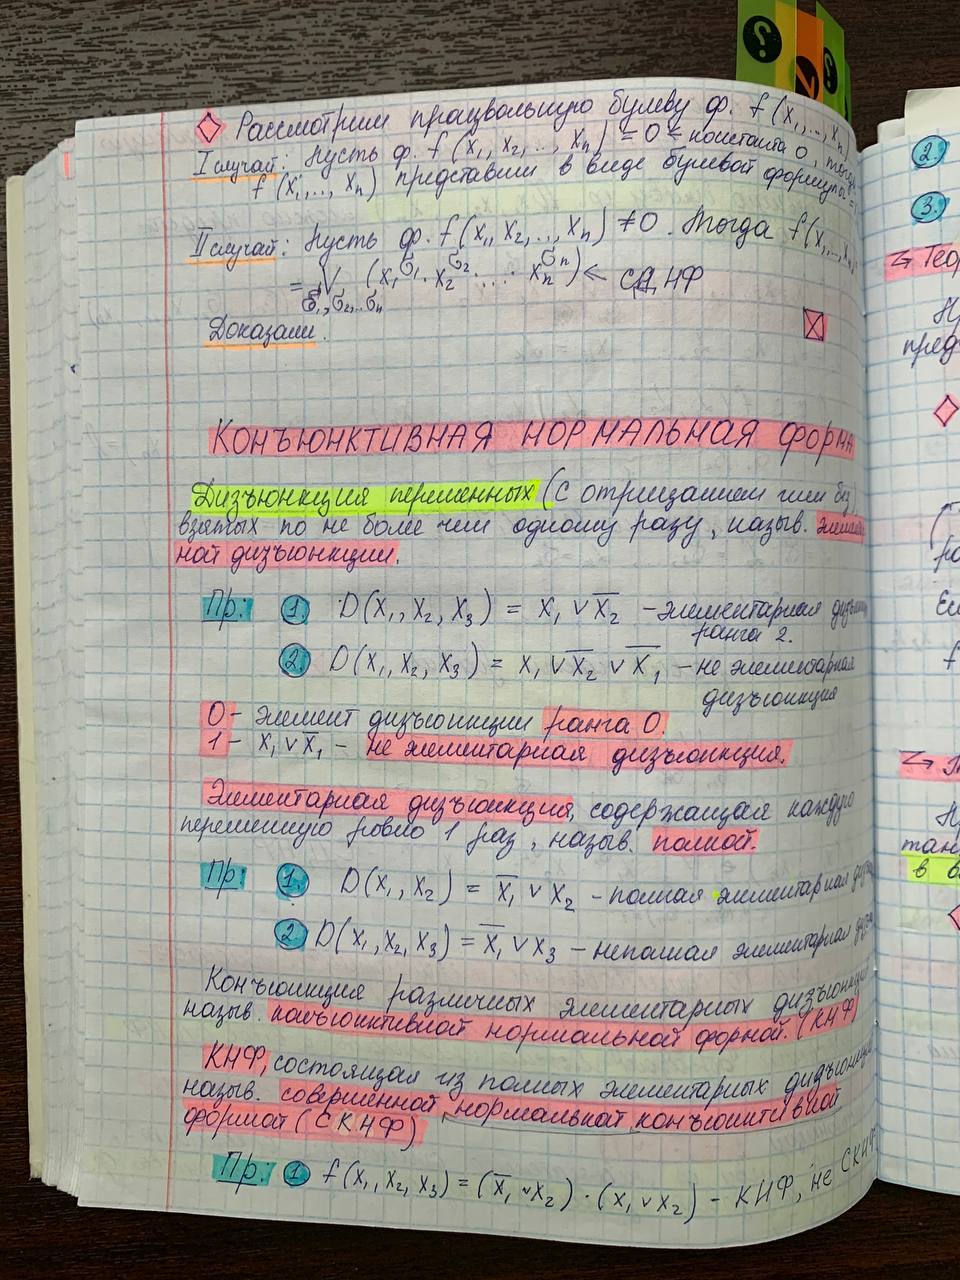 Рассмотрим произвольную булеву ф. f(x₁,..., xₙ)
I случай: Пусть ф. f(x₁, x₂,..., xₙ) ≡ 0 ← константа 0, тогда
f(x₁,..., xₙ) представим в виде булевой формулы
II случай: Пусть ф. f(x₁, x₂,..., xₙ) ≠ 0. Тогда f(x₁,..,xₙ)
= V (x₁^σ₁ · x₂^σ₂ · ... · xₙ^σₙ) ← СДНФ
σ₁,σ₂,..σₙ
Доказали.
КОНЪЮНКТИВНАЯ НОРМАЛЬНАЯ ФОРМА
Дизъюнкция переменных (с отрицанием или без)
взятых по не более чем одному разу, назыв. элемен
ной дизъюнкции.
Пр: 1. D(x₁, x₂, x₃) = x₁ ∨ x̅₂ - элементарная дизъюнк
ранга 2.
2. D(x₁, x₂, x₃) = x₁ ∨ x̅₂ ∨ x̅₁ - не элементарная
дизъюнкция
0 - элемент дизъюнкции ранга 0.
1 - x₁ ∨ x̅₁ - не элементарная дизъюнкция.
Элементарная дизъюнкция, содержащая каждую
переменную ровно 1 раз, назыв. полной.
Пр: 1. D(x₁, x₂) = x̅₁ ∨ x₂ - полная элементарная диз
2 D(x₁, x₂, x₃) = x̅₁ ∨ x₃ - неполная элементарная диз
Конъюнкция различных элементарных дизъюнкций
назыв. конъюнктивной нормальной формой. (КНФ)
КНФ, состоящая из полных элементарных дизъюнкций
назыв. совершенной нормальной конъюнктивной
формой (СКНФ)
Пр: 1 f(x₁, x₂, x₃) = (x̅₁ ∨ x₂) · (x₁ ∨ x₂) - КНФ, не СКНФ
2.
3.
Тео
пред
f
в в